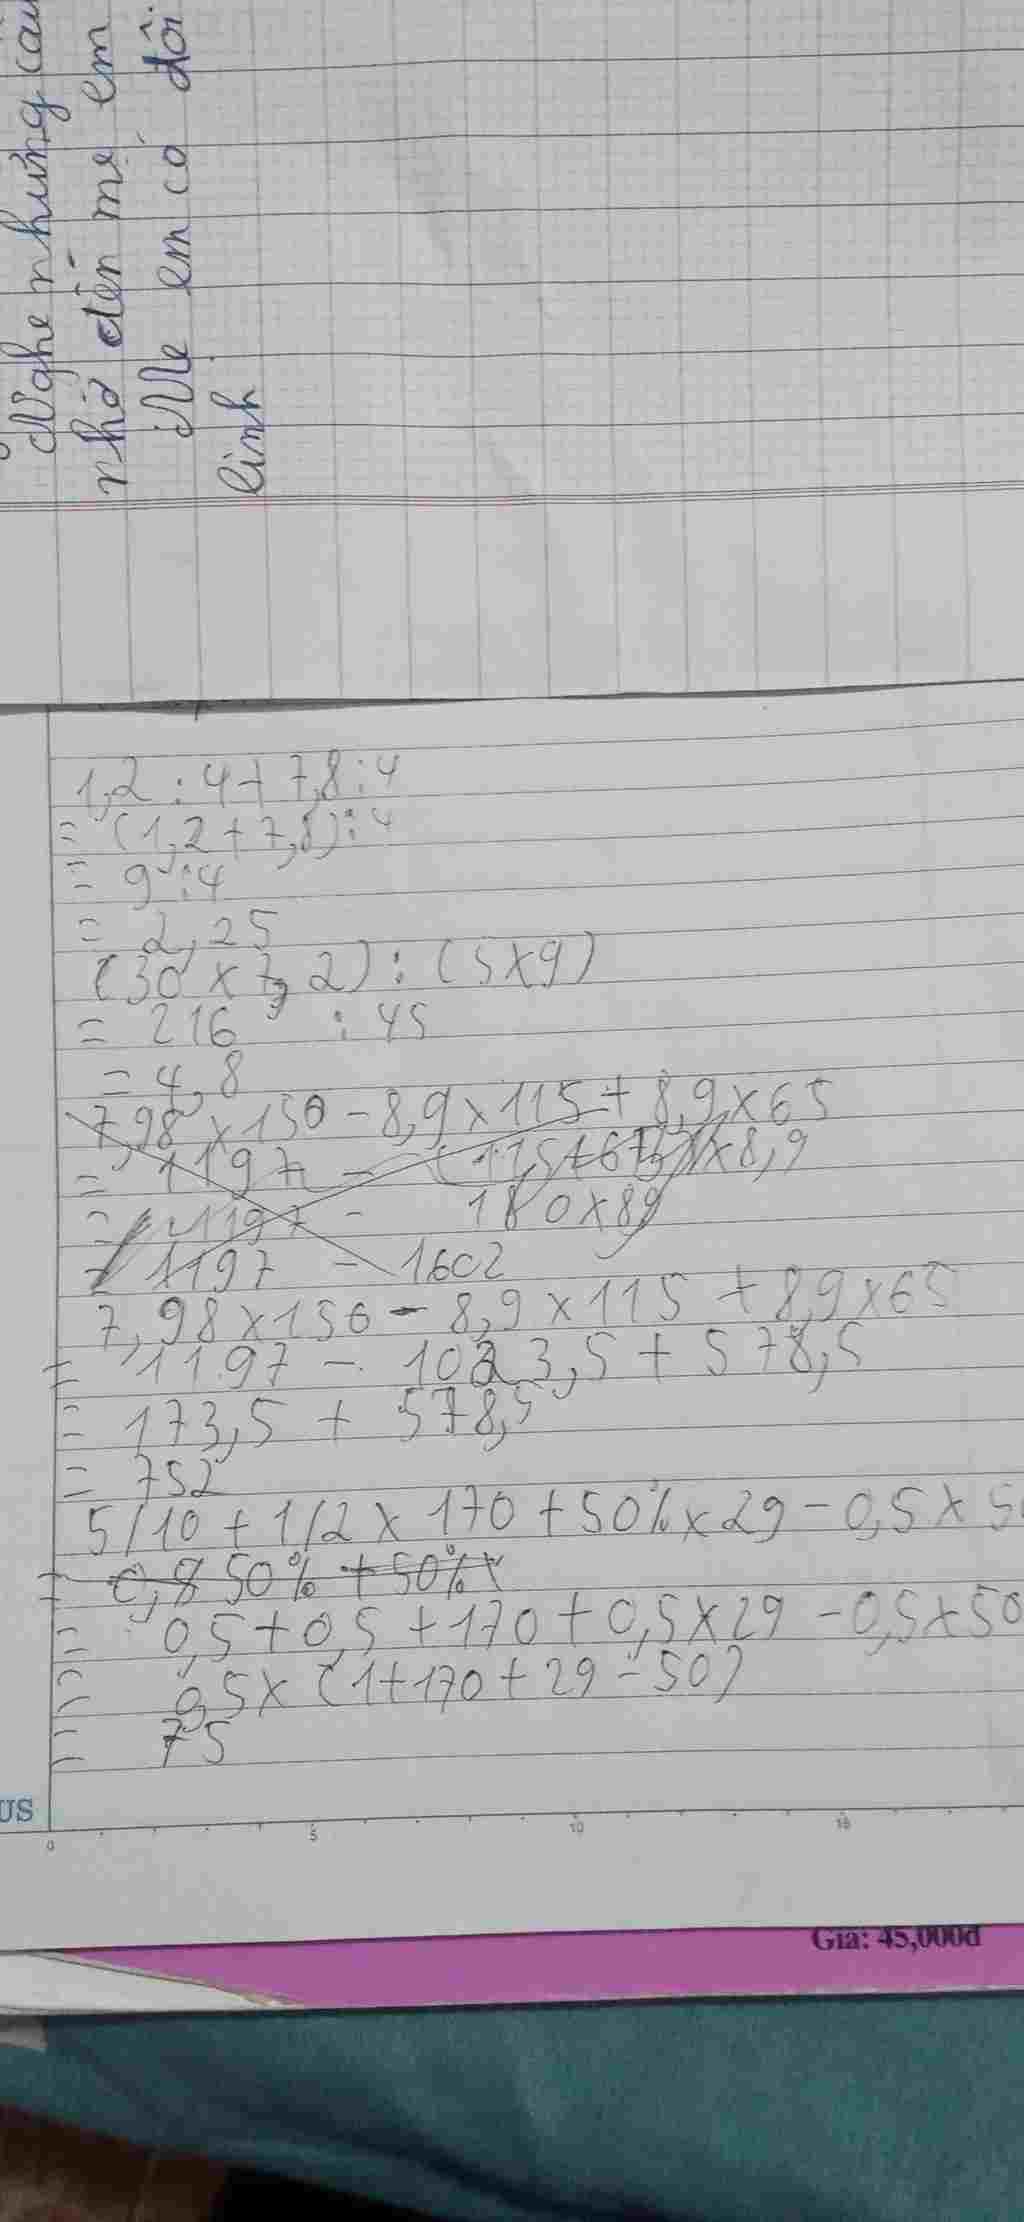 Nghe những câu
nhớ đến mẹ em
Mẹ em có đôi
linh
1,2 : 4 + 7,8 : 4
= (1,2 + 7,8) : 4
= 9 : 4
= 2,25
(30 x 7,2) : (5 x 9)
= 216 : 45
= 4,8
7,98 x 150 - 8,9 x 115 + 8,9 x 65
= 1197 - (115 + 65) x 8,9
= 1197 - 180 x 89
= 1197 - 1602
7,98 x 150 - 8,9 x 115 + 8,9 x 65
= 1197 - 1023,5 + 578,5
= 173,5 + 578,5
= 752
5/10 + 1/2 x 170 + 50% x 29 - 0,5 x 50
= 0,8 50% + 50% x
= 0,5 + 0,5 + 170 + 0,5 x 29 - 0,5 x 50
= 0,5 x (1 + 170 + 29 - 50)
= 75
US
0 5 10 15
Giá: 45,000đ